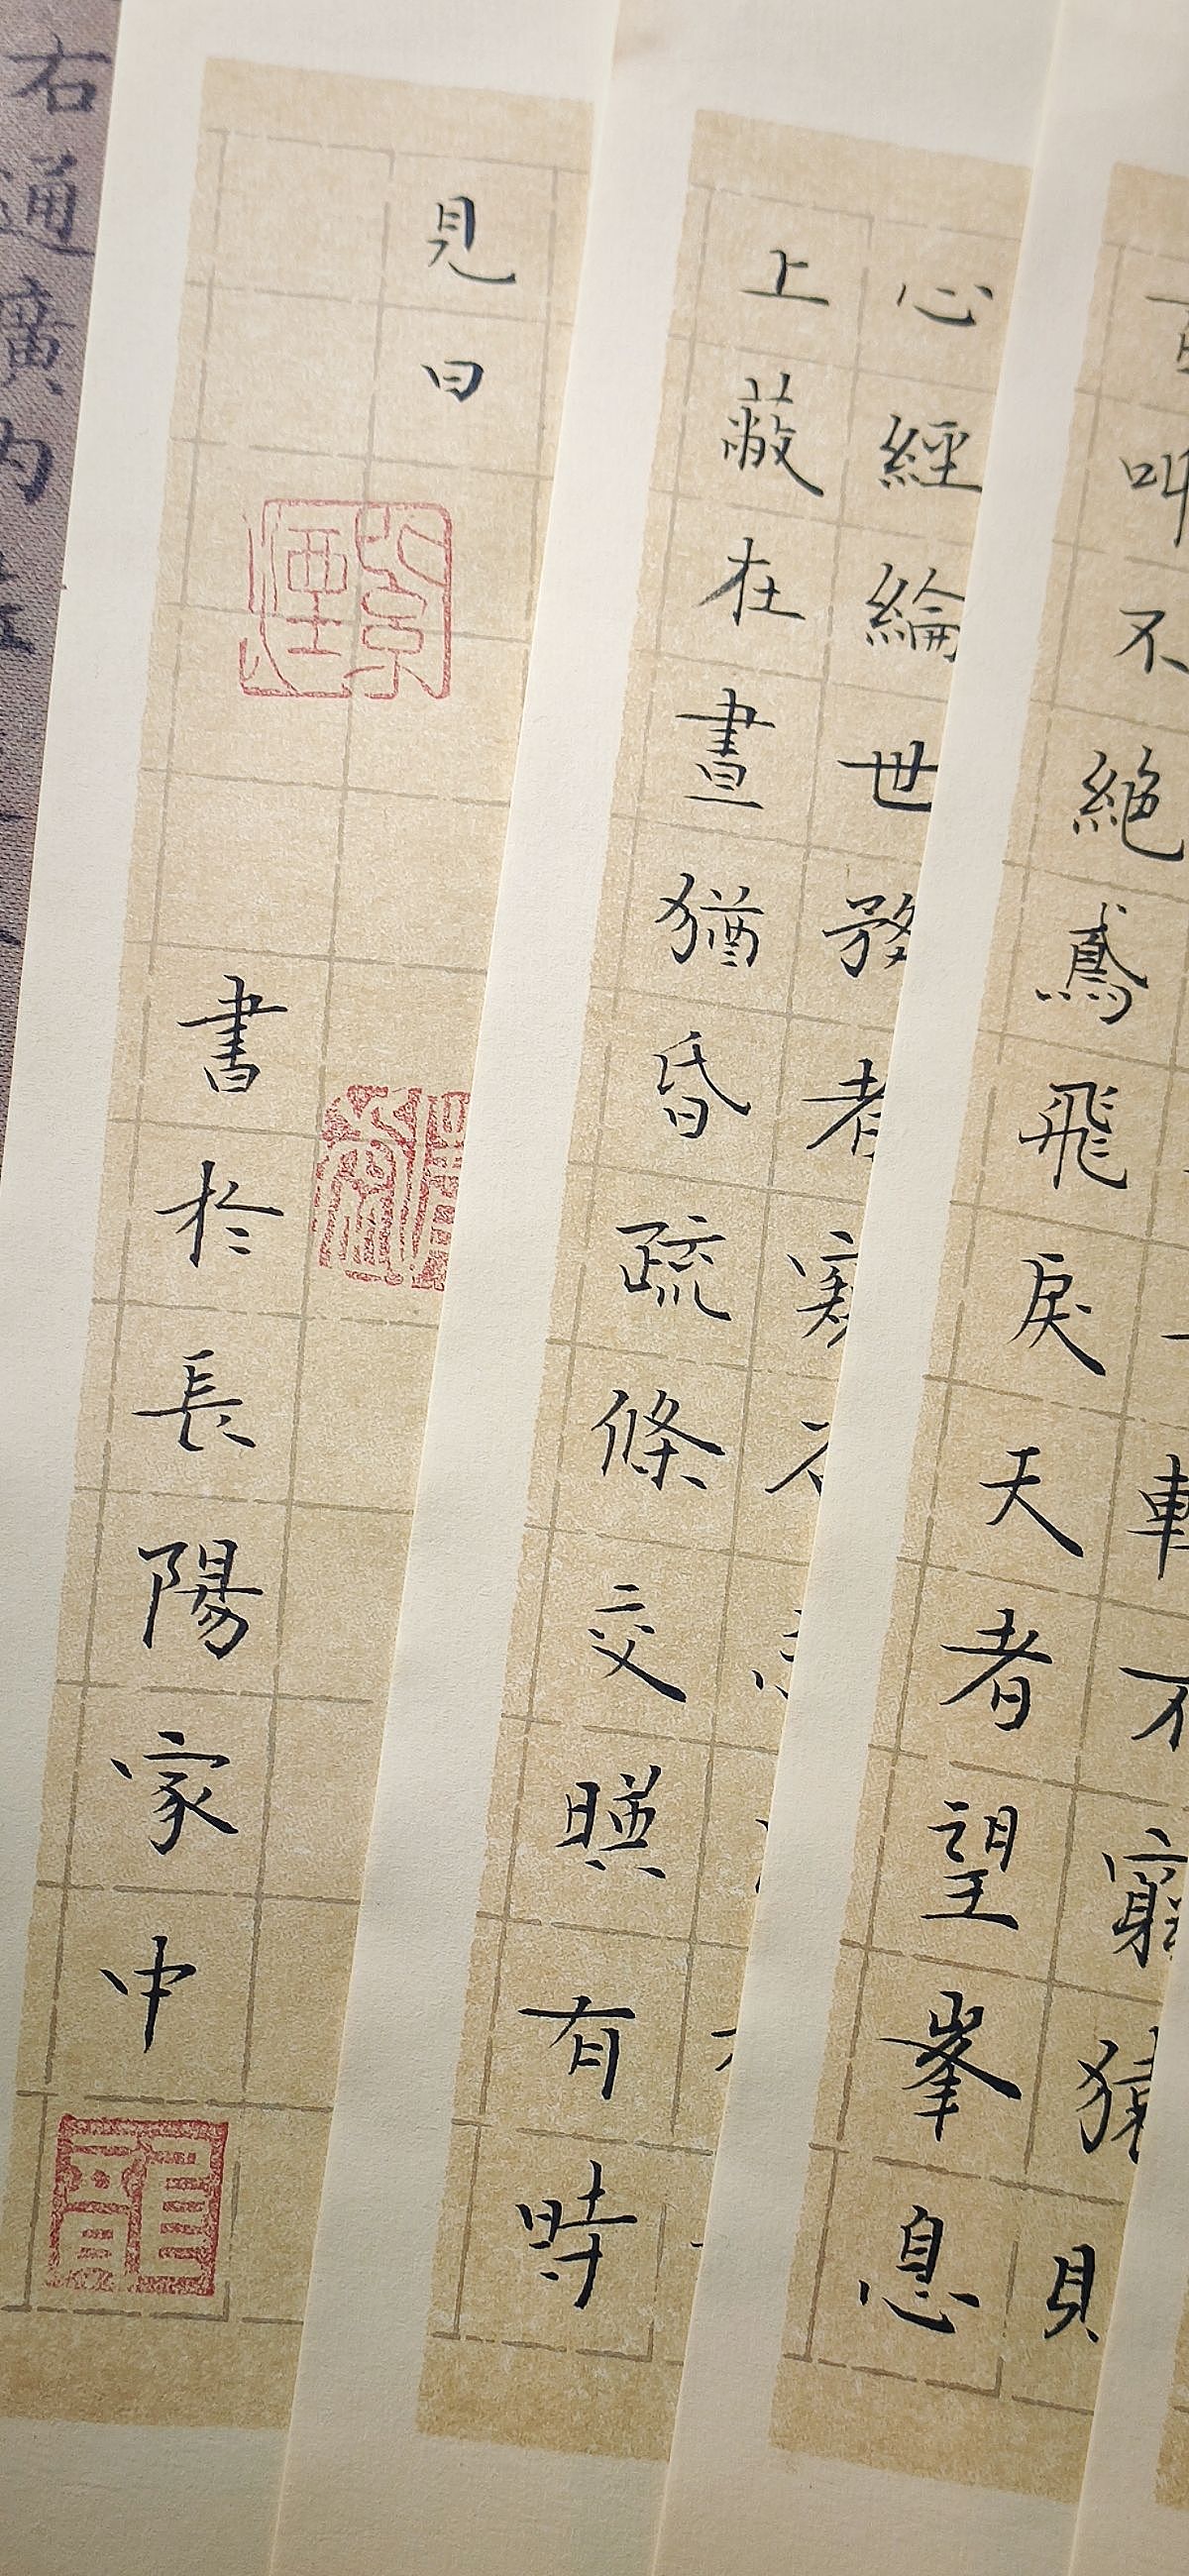 不窮猿
叫不絕鳶飛戾天者望峯息
心經綸世務者窺
上蔽在晝猶昏疏條交暎有時
見日
書於長陽家中
右通廣內